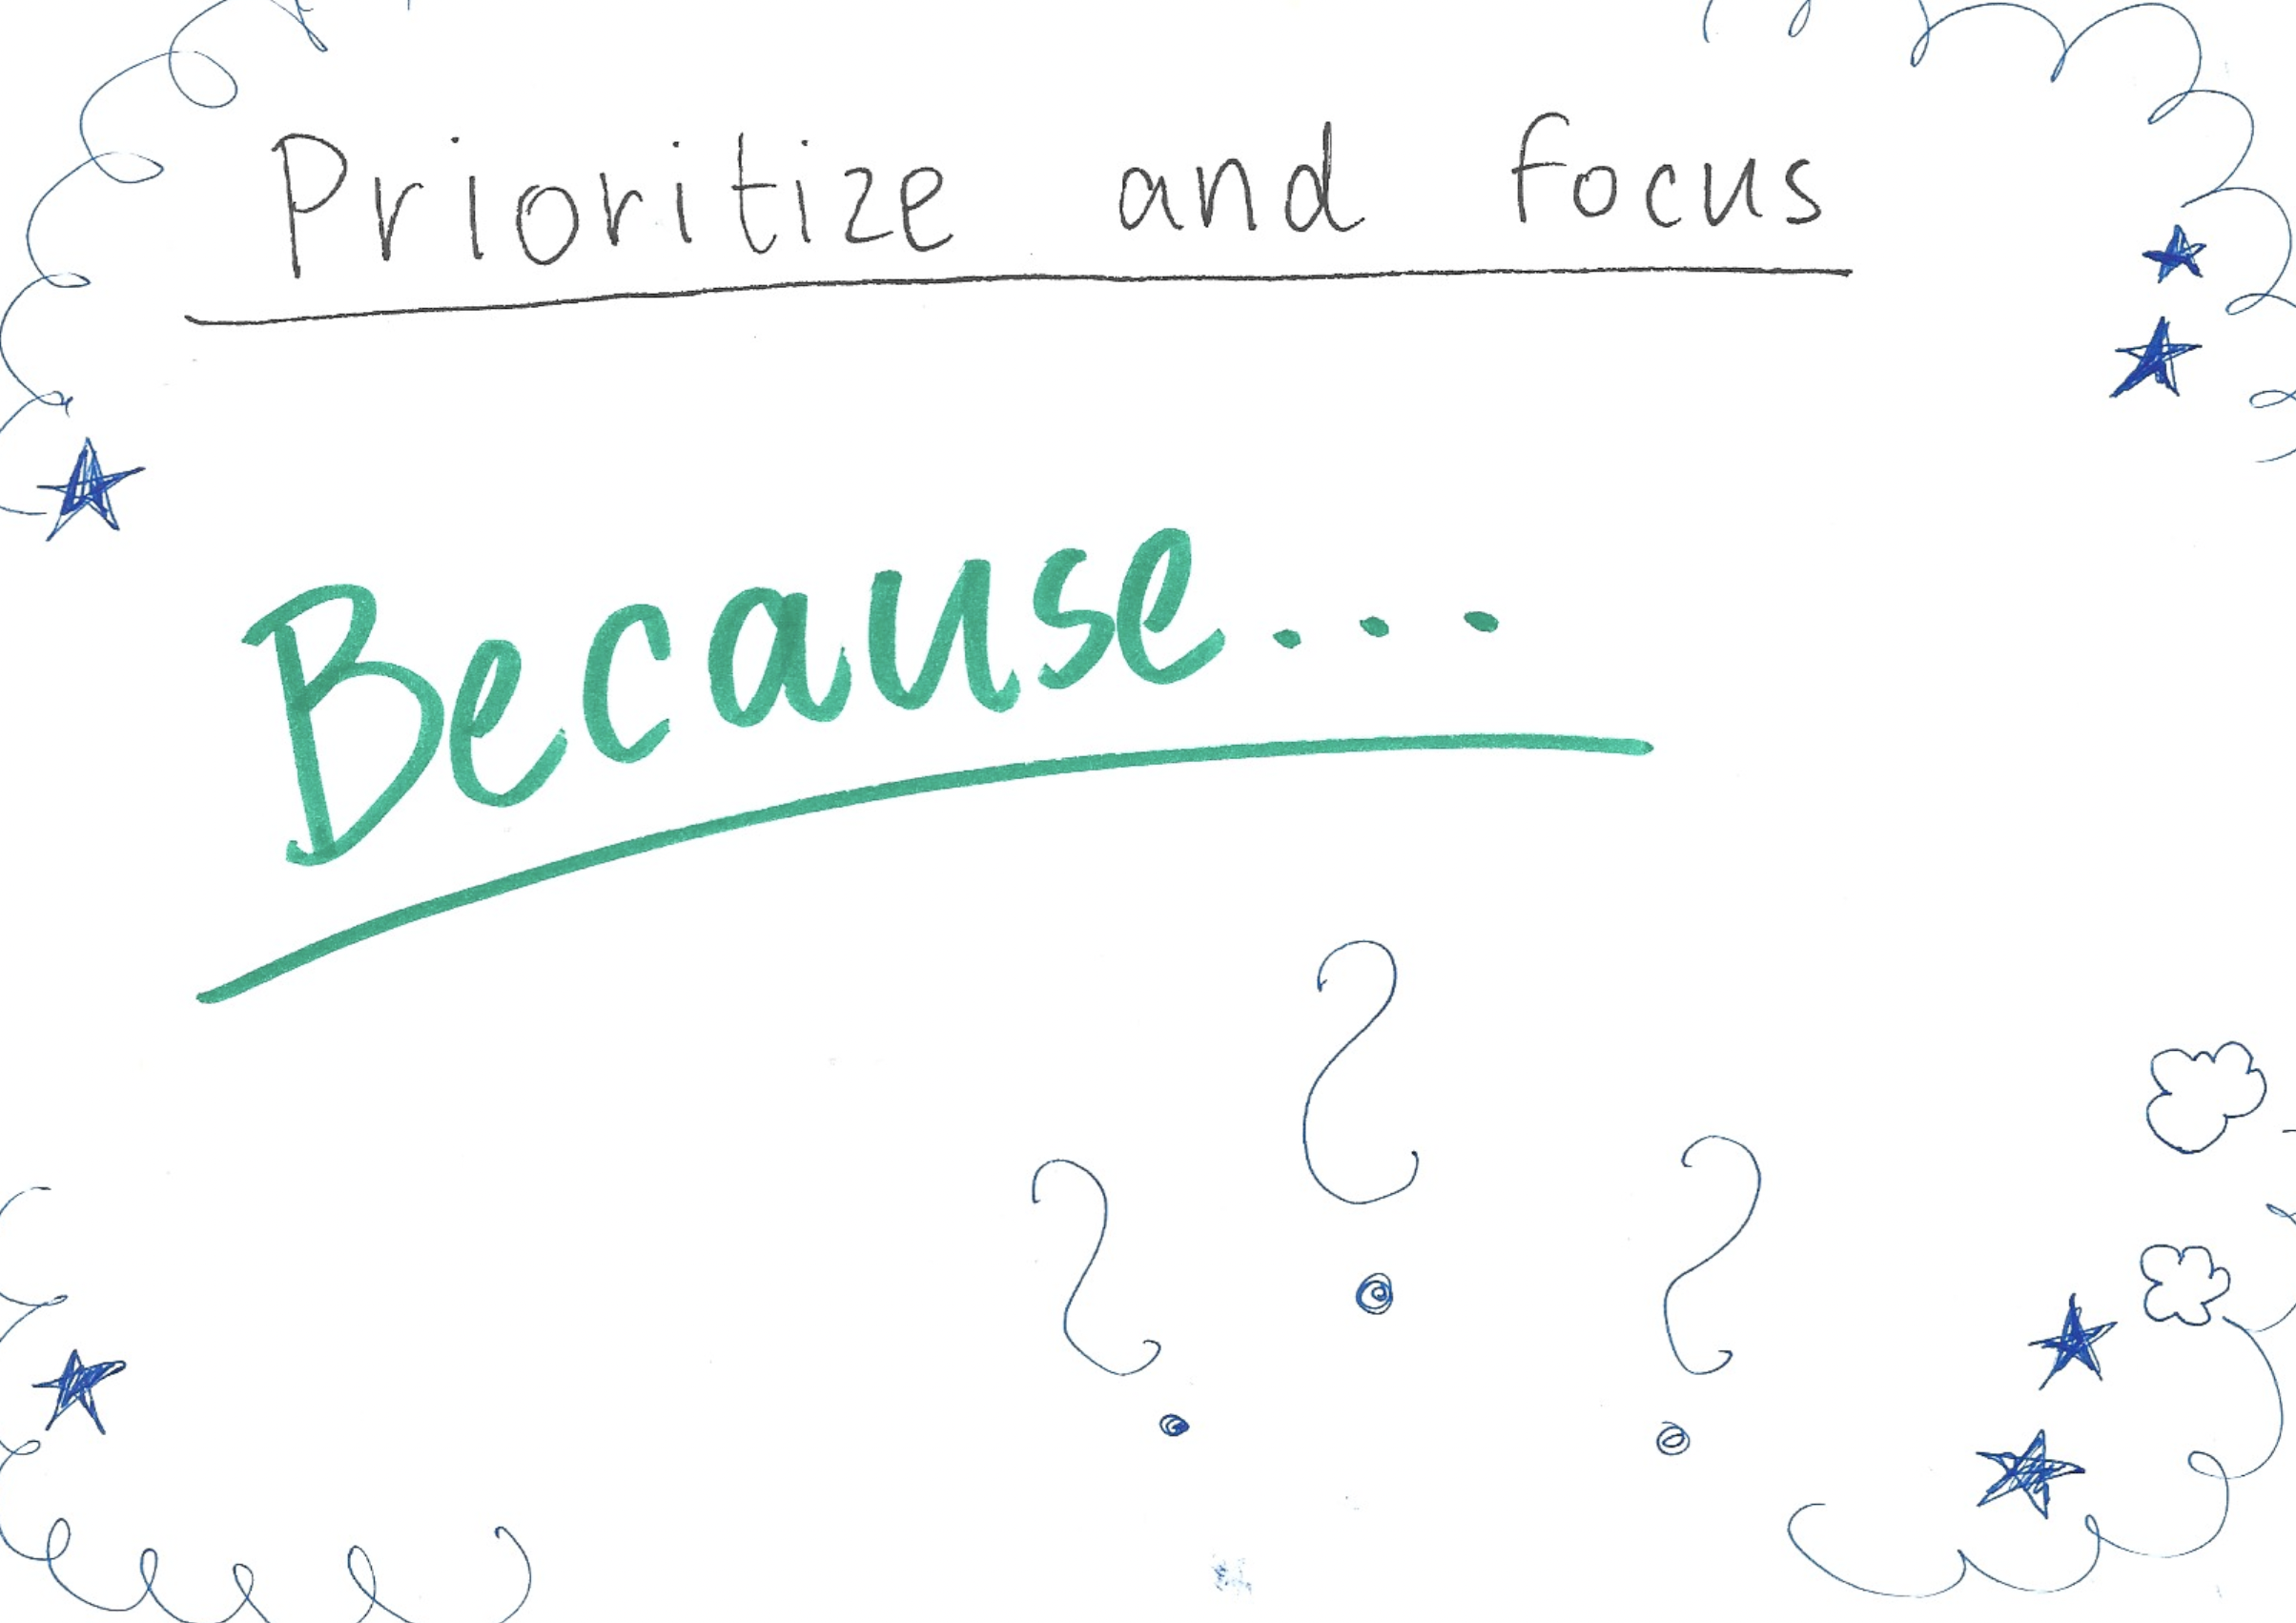 Prioritize and focus
Because...
? ? ?